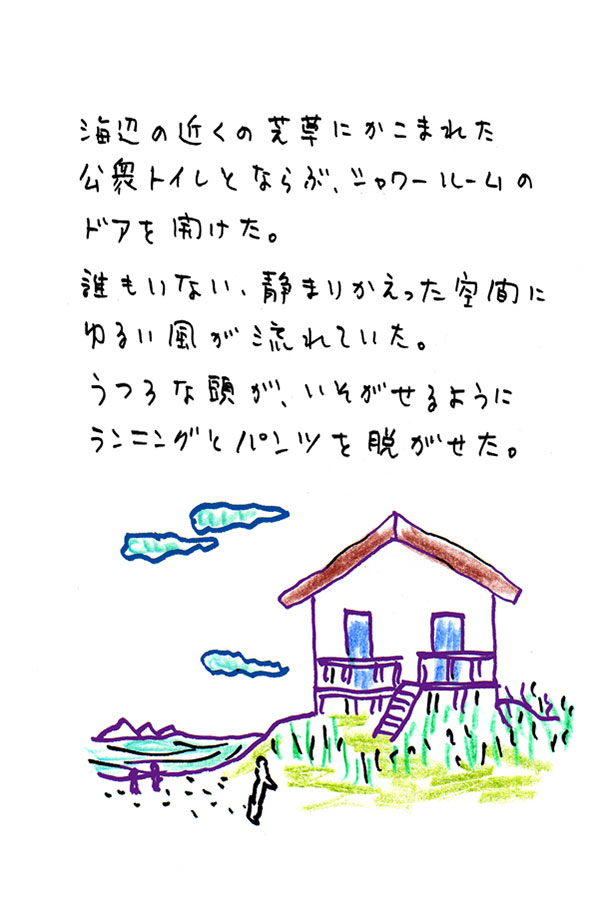 海辺の近くの芝草にかこまれた
公衆トイレとならぶ、シャワールームの
ドアを開けた。
誰もいない、静まりかえった空間に
ゆるい風が流れていた。
うつろな頭が、いそがせるように
ランニングとパンツを脱がせた。